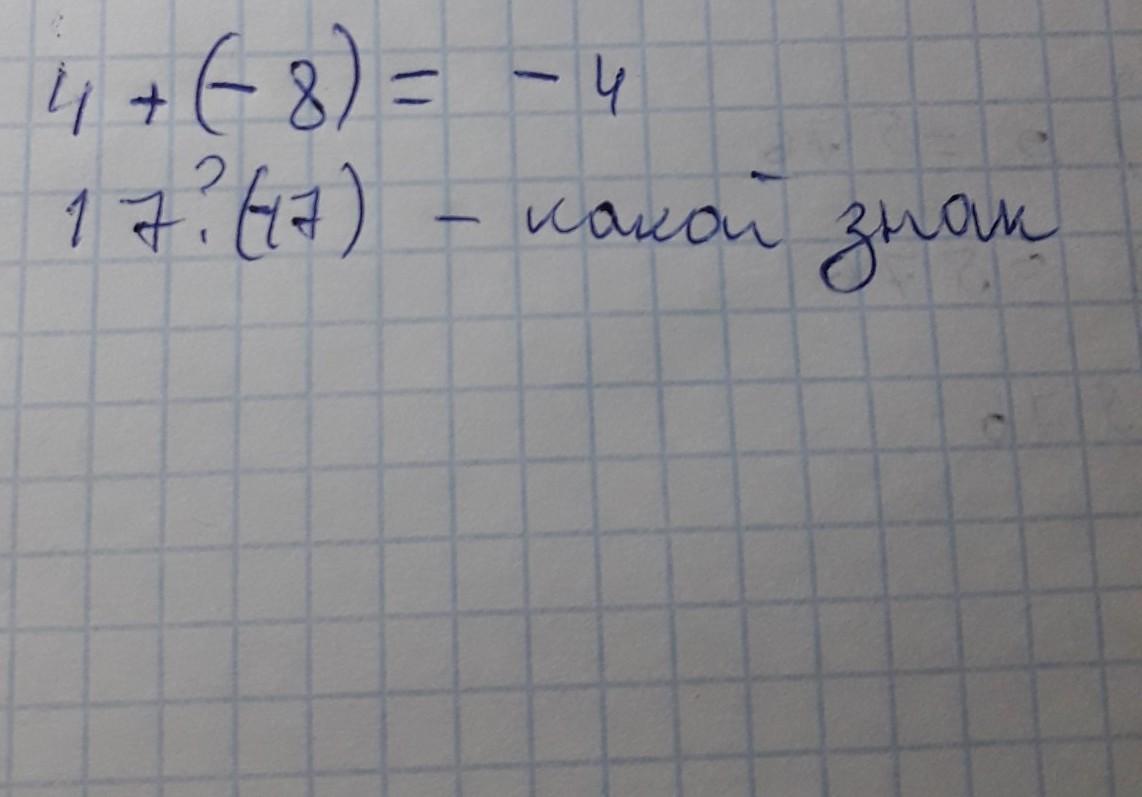 4 + (- 8) = - 4
17 ? (-17) - какой знак